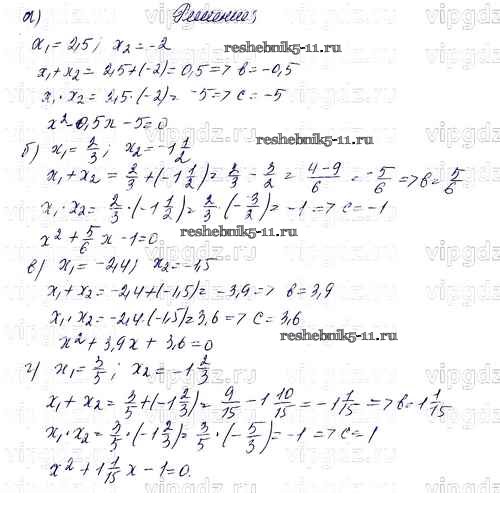 а) Решение:
x₁ = 2,5; x₂ = -2
reshebnik5-11.ru
x₁ + x₂ = 2,5 + (-2) = 0,5 => b = -0,5
x₁ · x₂ = 2,5 · (-2) = -5 => c = -5
x² - 0,5x - 5 = 0
б) x₁ = 2/3; x₂ = -1 1/2
x₁ + x₂ = 2/3 + (-1 1/2) = 2/3 - 3/2 = (4-9)/6 = -5/6 => b = 5/6
x₁ · x₂ = 2/3 · (-1 1/2) = 2/3 · (-3/2) = -1 => c = -1
x² + 5/6 x - 1 = 0
reshebnik5-11.ru
в) x₁ = -2,4; x₂ = -1,5
x₁ + x₂ = -2,4 + (-1,5) = -3,9 => b = 3,9
x₁ · x₂ = -2,4 · (-1,5) = 3,6 => c = 3,6
x² + 3,9x + 3,6 = 0
reshebnik5-11.ru
г) x₁ = 3/5; x₂ = -1 2/3
x₁ + x₂ = 3/5 + (-1 2/3) = 9/15 - 1 10/15 = -1 1/15 => b = 1 1/15
x₁ · x₂ = 3/5 · (-1 2/3) = 3/5 · (-5/3) = -1 => c = 1
x² + 1 1/15 x - 1 = 0.
vipgdz.ru